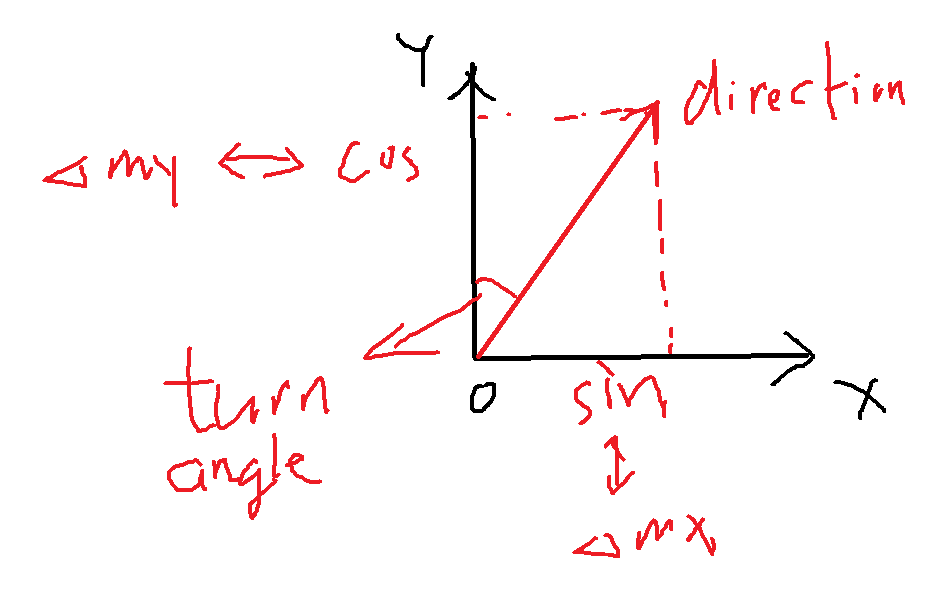 Y
direction
△my ↔ cos
turn
angle
0
sin
X
↕
△mx